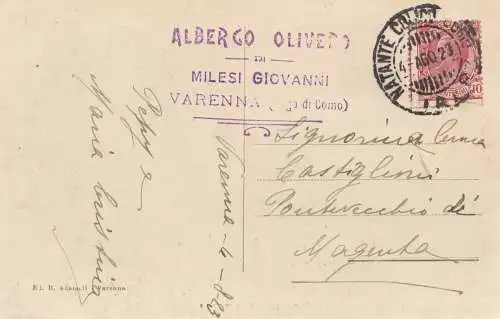 ALBERGO OLIVEDO
DI
MILESI GIOVANNI
VARENNA (di Como)
NATANTE COLICO COMO
4 AGO 23
10
Pepy e
Maria Cristina
Varenna - 4 - 8 - 23
Signorina
Castiglioni
Pontevecchio di
Magenta
Ed. B. Adamoli - Varenna